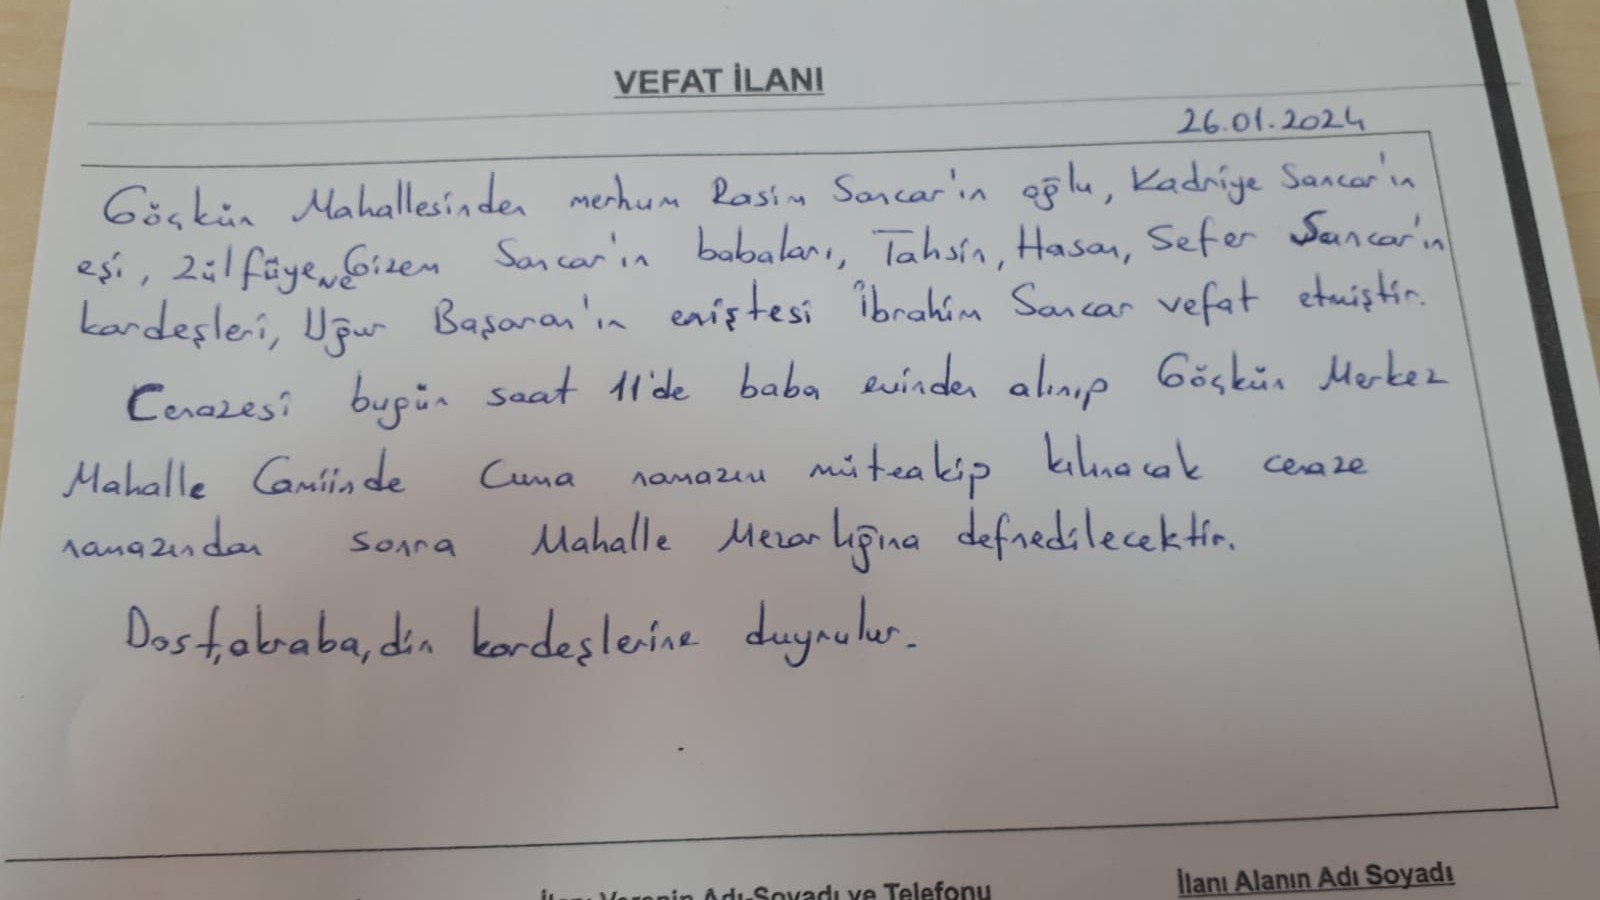 VEFAT İLANI
26.01.2024
Göçkün Mahallesinden merhum Rasim Sancar'ın oğlu, Kadriye Sancar'ın
eşi, Zülfüye ve Gizem Sancar'ın babaları, Tahsin, Hasan, Sefer Sancar'ın
kardeşleri, Uğur Başaran'ın eniştesi İbrahim Sancar vefat etmiştir.
Cenazesi bugün saat 11'de baba evinden alınıp Göçkün Merkez
Mahalle Camiinde Cuma namazını müteakip kılınacak cenaze
namazından sonra Mahalle Mezarlığına defnedilecektir.
Dost, akraba, din kardeşlerine duyrulur.
İlanı Verenin Adı-Soyadı ve Telefonu
İlanı Alanın Adı Soyadı